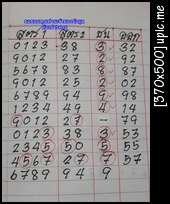 สูตร 1 สูตร 2 ชน ออก
0123 38 3 32
9012 27 2 92
5678 83 8 87
9012 25 2 02
6789 94 9 98
1234 49 4 14
9012 27 - 79
0123 38 3 53
2345 50 5 55
4567 27 7 57
6789 94 9
[370x500] upic.me